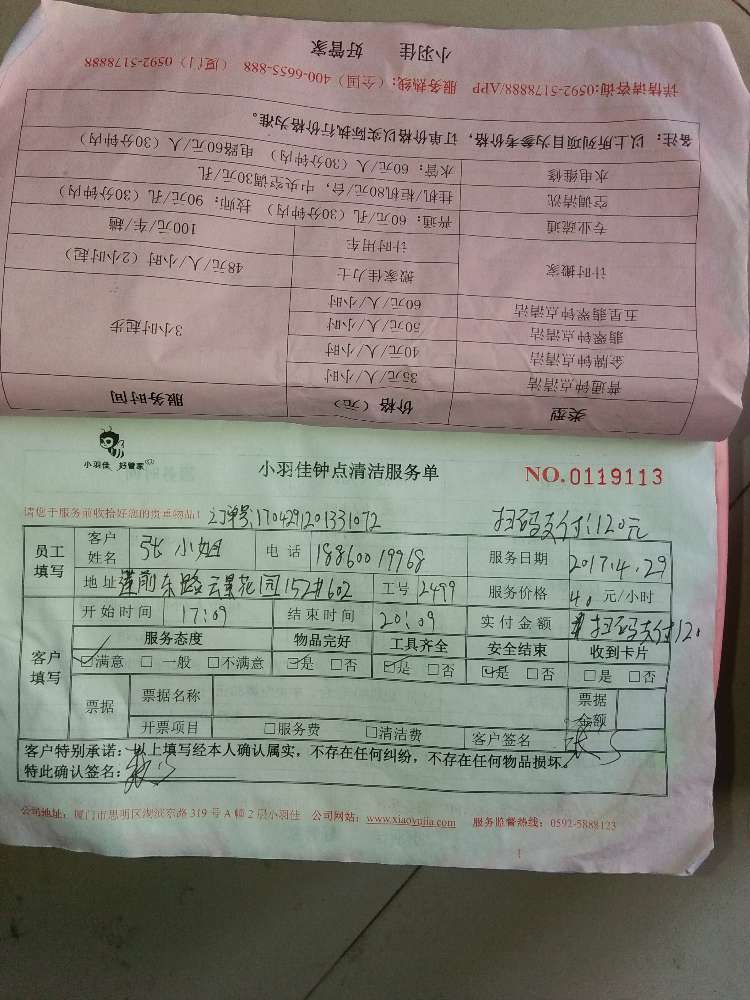 小羽佳 好管家
详情请咨询:0592-5178888/APP 服务热线:(全国)400-6655-888 (厦门)0592-5178888
备注:以上所列项目为参考价格,订单价格以实际执行价格为准。
水电维修 水管:60元/人(30分钟内) 电路60元/人(30分钟内)
空调清洗 挂机/柜机80元/台,中央空调30元/孔
专业疏通 普通:60元/孔(30分钟内) 技师:90元/孔(30分钟内)
计时搬家 计时用车 100元/车/趟
搬家佳力士 48元/人/小时(2小时起)
五星翡翠钟点清洁 60元/人/小时
翡翠钟点清洁 50元/人/小时 3小时起步
金牌钟点清洁 40元/人/小时
普通钟点清洁 35元/人/小时
类型 价格(元) 服务时间
小羽佳 好管家
小羽佳钟点清洁服务单 NO.0119113
请您于服务前收拾好您的贵重物品! 订单号:170429201331072 扫码支付:120元
员工填写 客户姓名 张小姐 电话 18860019968 服务日期 2017.4.29
地址 莲前东路云景花园152#602 工号 2499 服务价格 40元/小时
客户填写 开始时间 17:09 结束时间 20:09 实付金额 扫码支付120
服务态度 物品完好 工具齐全 安全结束 收到卡片
☑满意 □一般 □不满意 ☑是 □否 ☑是 □否 ☑是 □否 □是 □否
票据 票据名称 票据金额
开票项目 □服务费 □清洁费 客户签名
客户特别承诺:以上填写经本人确认属实,不存在任何纠纷,不存在任何物品损坏。
特此确认签名:
公司地址:厦门市思明区湖滨东路319号A幢2层小羽佳 公司网站:www.xiaoyujia.com 服务监督热线:0592-5888123